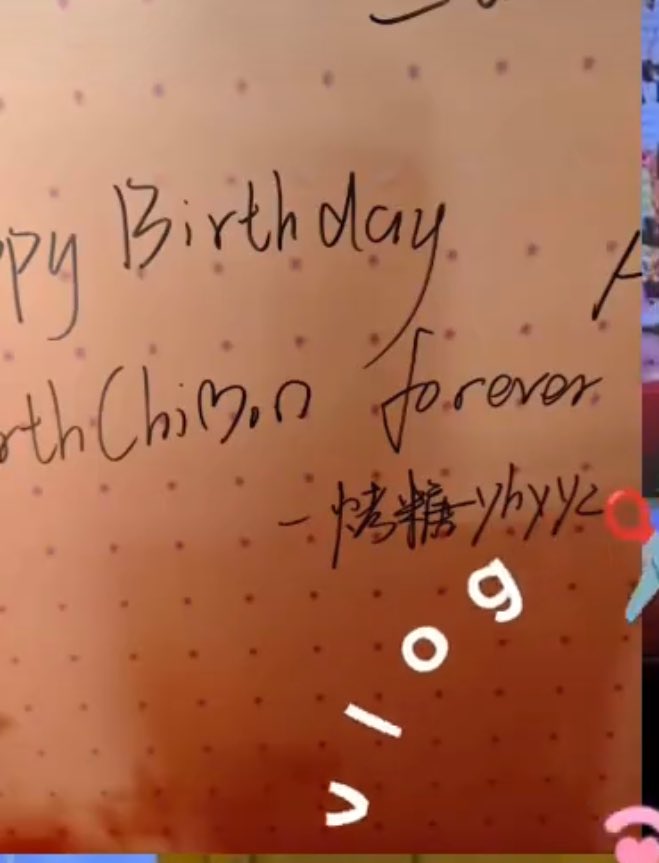 ppy Birthday
rthChimon forever
-烤糖-yhyyz
vlog